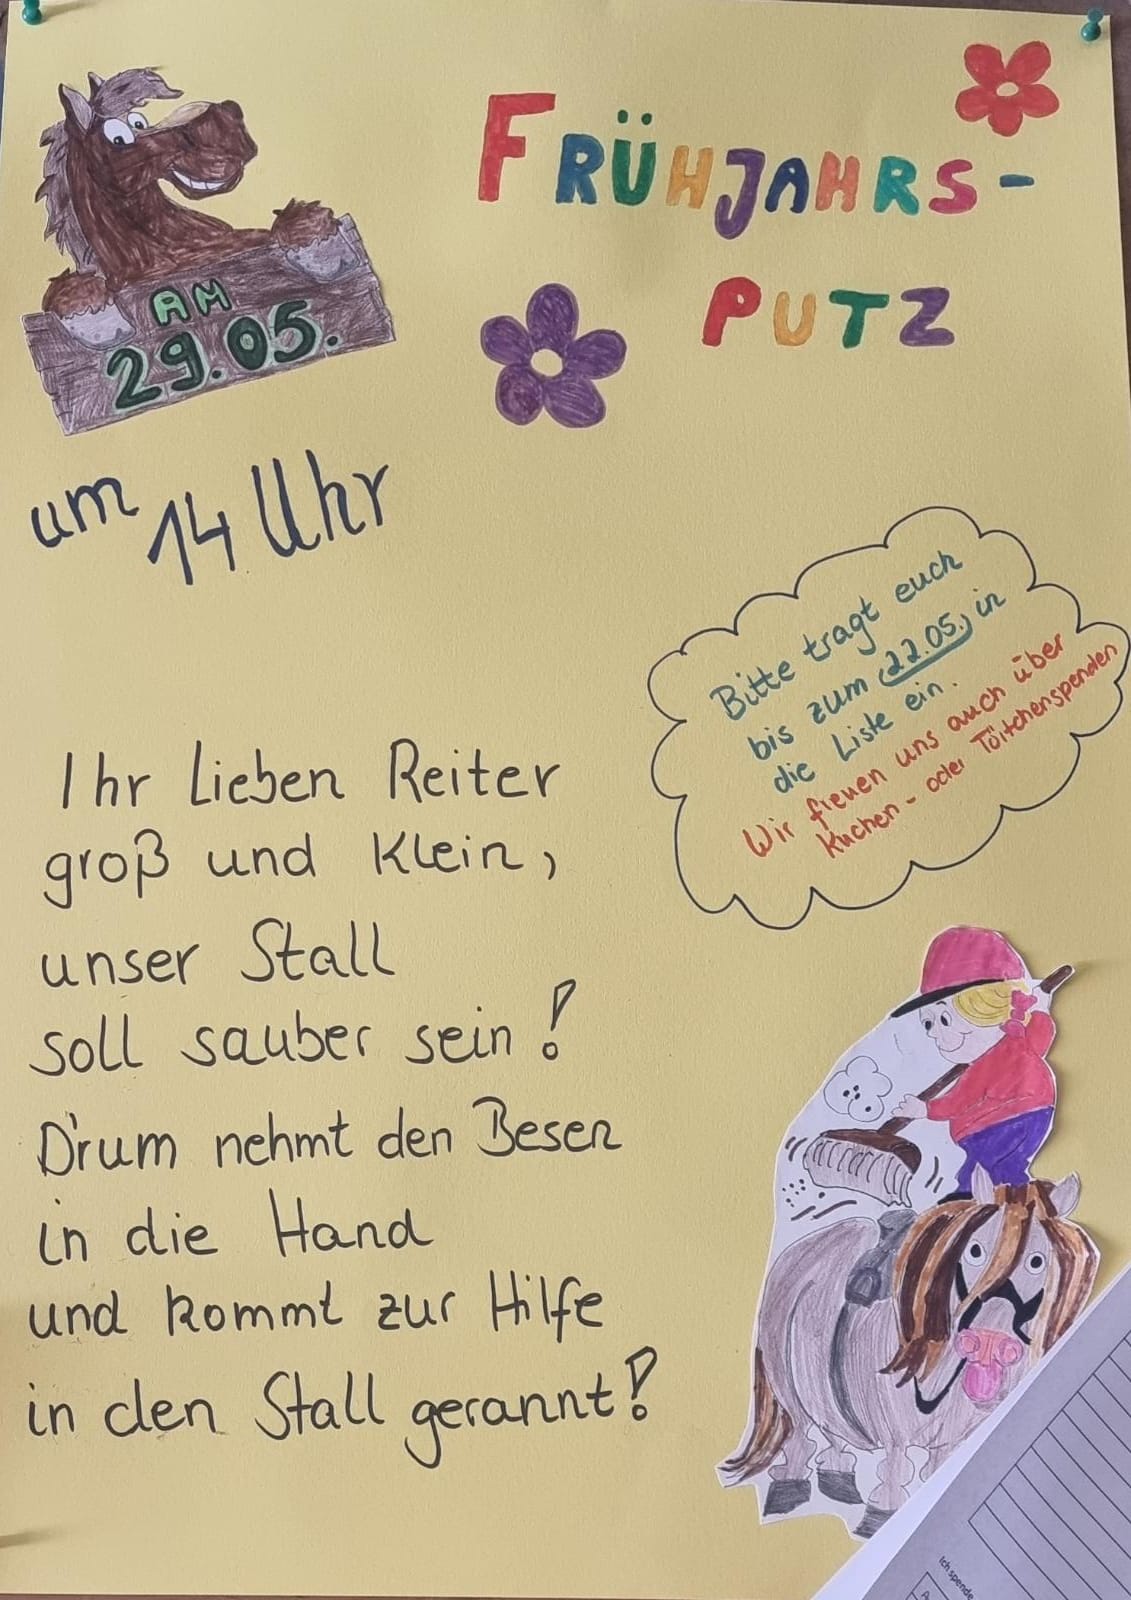 FRÜHJAHRS-
PUTZ
AM
29.05.
um 14 Uhr
Bitte tragt euch
bis zum 22.05. in
die Liste ein.
Wir freuen uns auch über
Kuchen- oder Törtchenspenden
Ihr lieben Reiter
groß und Klein,
unser Stall
soll sauber sein!
D'rum nehmt den Besen
in die Hand
und kommt zur Hilfe
in den Stall gerannt!
Ich spende